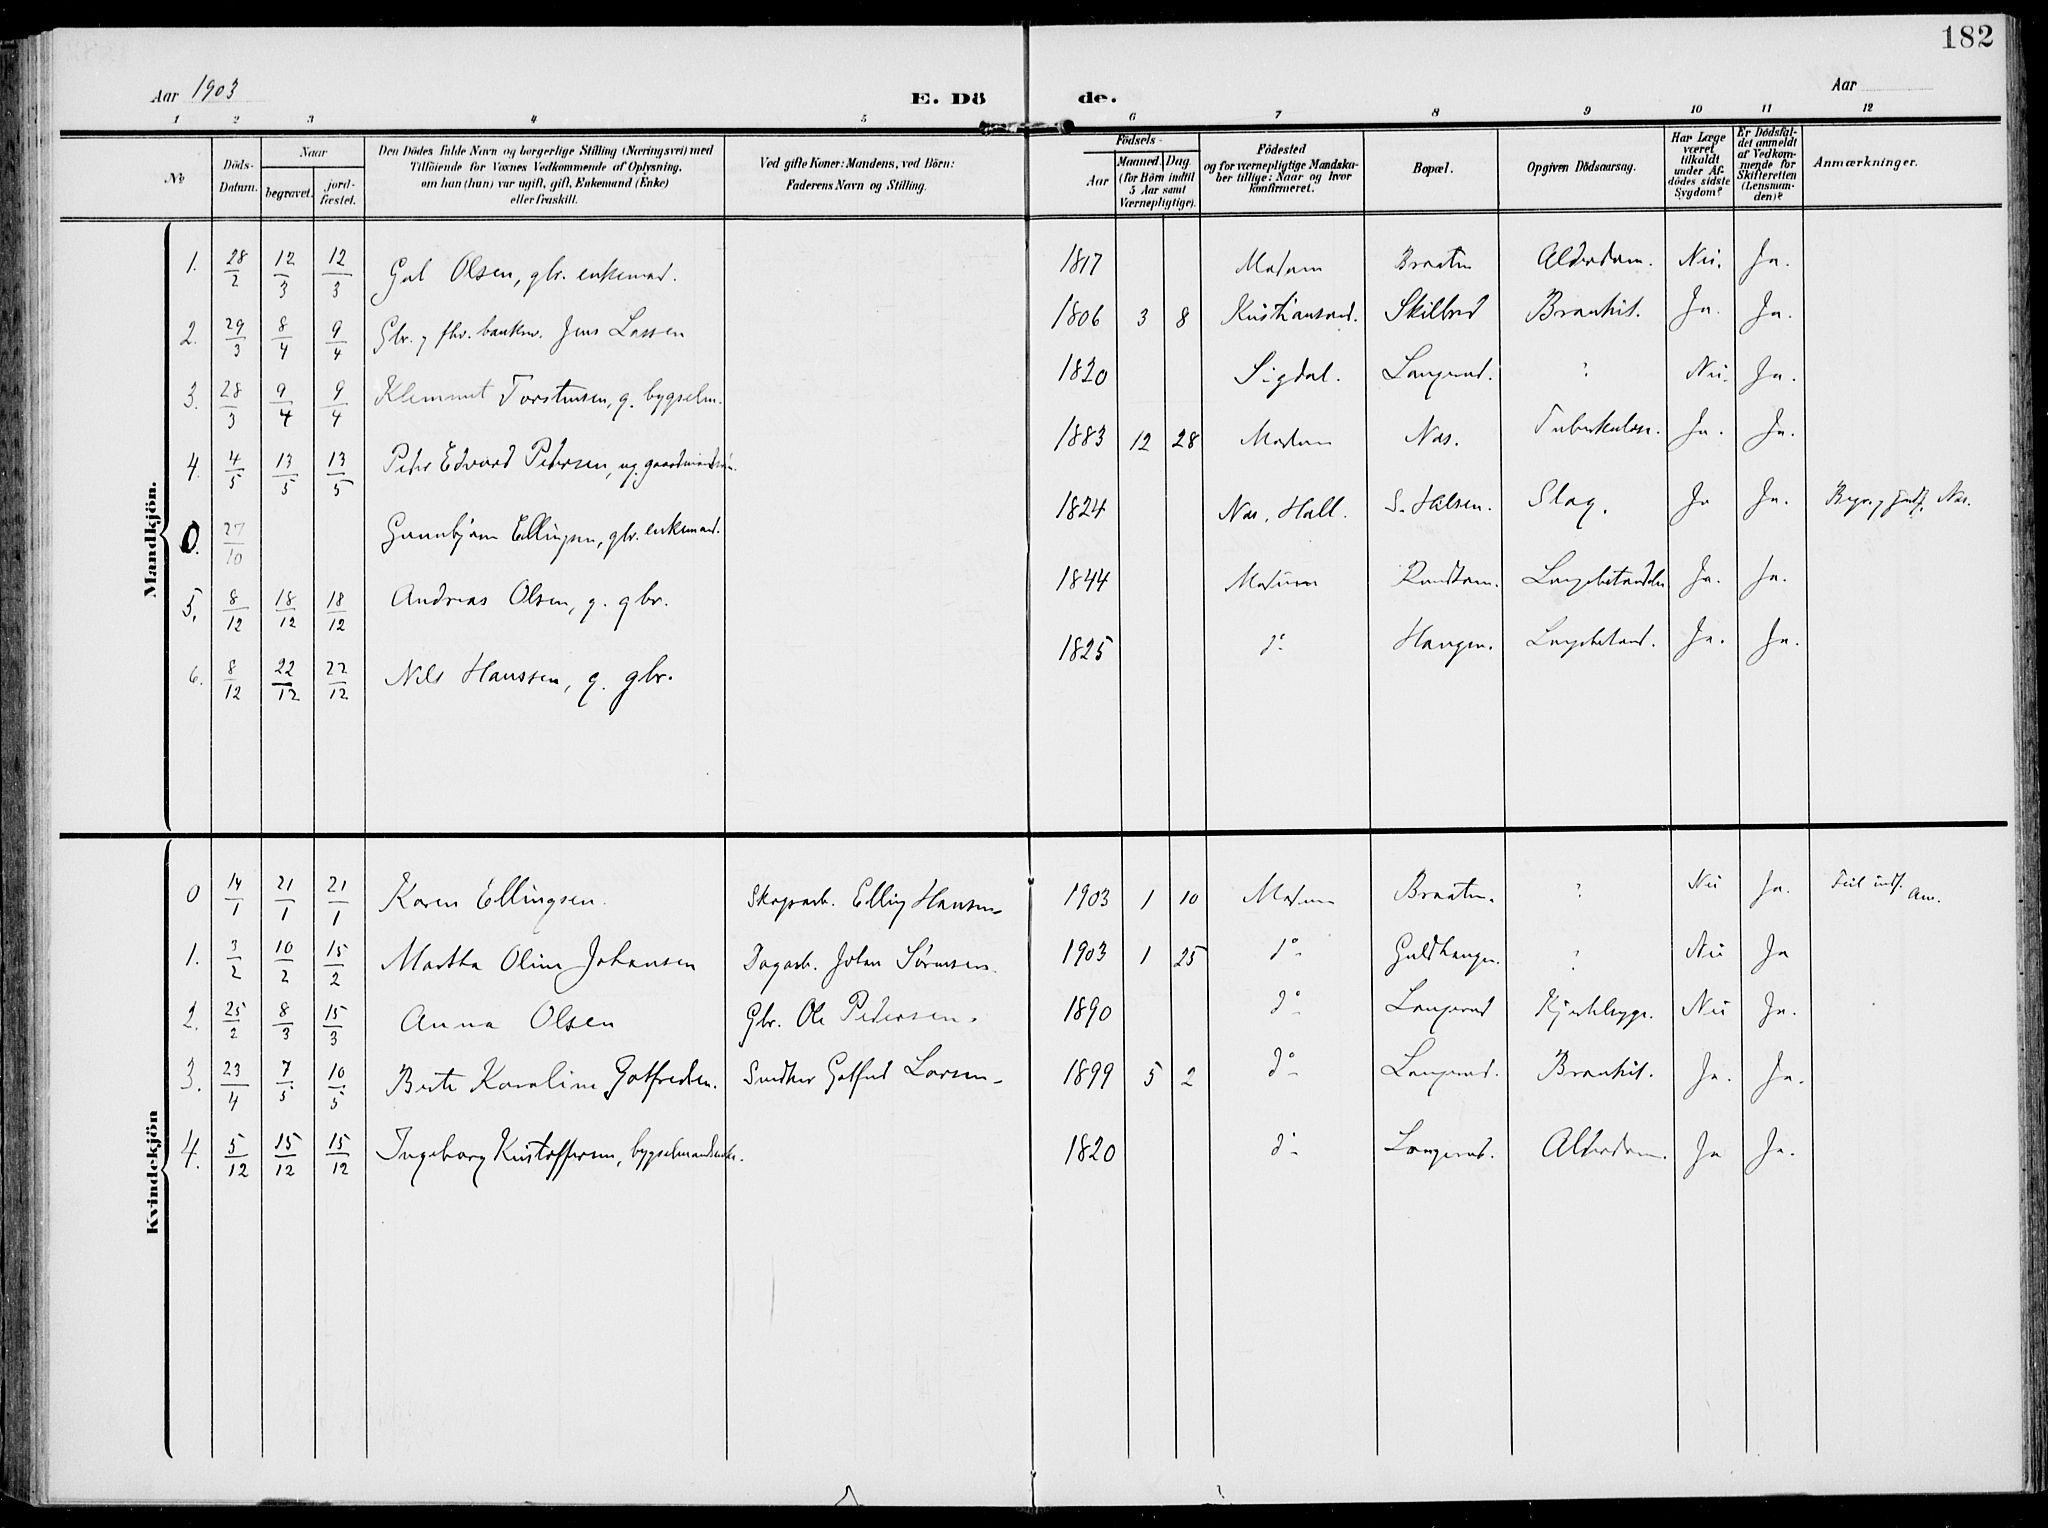 182
Aar 1903 E. Dö de. Aar
1 2 3 4 5 6 7 8 9 10 11 12
No
Döds-Datum.
Naar
begravet.
jord-fæstet.
Den Dödes fulde Navn og borgerlige Stilling (Næringsvei) med
Tilföiende for Voxnes Vedkommende af Oplysning,
om han (hun) var ugift, gift, Enkemand (Enke)
eller fraskilt.
Ved gifte Koner: Mandens, ved Börn:
Faderens Navn og Stilling.
Födsels-
Aar
Maaned. Dag.
(for Börn indtil
5 Aar samt
Værnepligtige).
Födested
og for værnepligtige Mandska-
ber tillige: Naar og hvor
konfirmeret.
Bopæl.
Opgiven Dödsaarsag.
Har Læge
været
tilkaldt
under Af-
dödes sidste
Sygdom?
Er Dödsfal-
det anmeldt
af Vedkom-
mende for
Skifteretten
(Lensman-
den)?
Anmærkninger.
Mandkjön.
1. 28/2 12/3 12/3 Gul Olsen, gbr. enkemand. 1817 Modum Braaten Alderdom. Nei. Ja.
2. 29/3 8/4 9/4 Gbr. g fhv. Jens Lassen 1806 3 8 Kristiansand. Skilbred Bronkit. Ja. Ja.
3. 28/3 9/4 9/4 Klemmet Torstensen, g. bygselm. 1820 Sigdal. Langerud. ? Nei. Ja.
4. 4/5 13/5 13/5 Peder Edvard Pedersen, ug. gaardmandssön. 1883 12 28 Modum Næs. Tuberkulose. Ja. Ja.
0. 27/10 Gunnbjørn Ellingsen, gbr. enkemand. 1824 Næs. Hall. S. Hilsen. Slag. Ja Ja. Begr. g jordf. Næs.
5. 8/12 18/12 18/12 Andreas Olsen, g. gbr. 1844 Modum Lungebetændelse Ja. Ja.
6. 8/12 22/12 22/12 Nils Hanssen, g. gbr. 1825 do Haugen. Lungebetænd. Ja. Ja.
Kvindekjön
0 14/1 21/1 21/1 Karen Ellingsen. Skogsarb. Elling Hansen 1903 1 10 Modum Braaten. ? Nei Ja. Feil indf. Anm.
1. 3/2 10/2 15/2 Martha Oline Johansen Dagarb. Johan Sørensen. 1903 1 25 do Guldhaugen. ? Nei Ja
2. 25/2 8/3 15/3 Anna Olsen Gbr. Ole Pedersen. 1890 do Langerud Nei Ja.
3. 23/4 7/5 10/5 Berte Karoline Gotfredsen. Snedker Gotfred Larsen 1899 5 2 do Langerud. Bronkit. Ja. Ja.
4. 5/12 15/12 15/12 Ingeborg Kristoffersen, bygselmandsenke. 1820 do Langerud. Alderdom. Ja Ja.